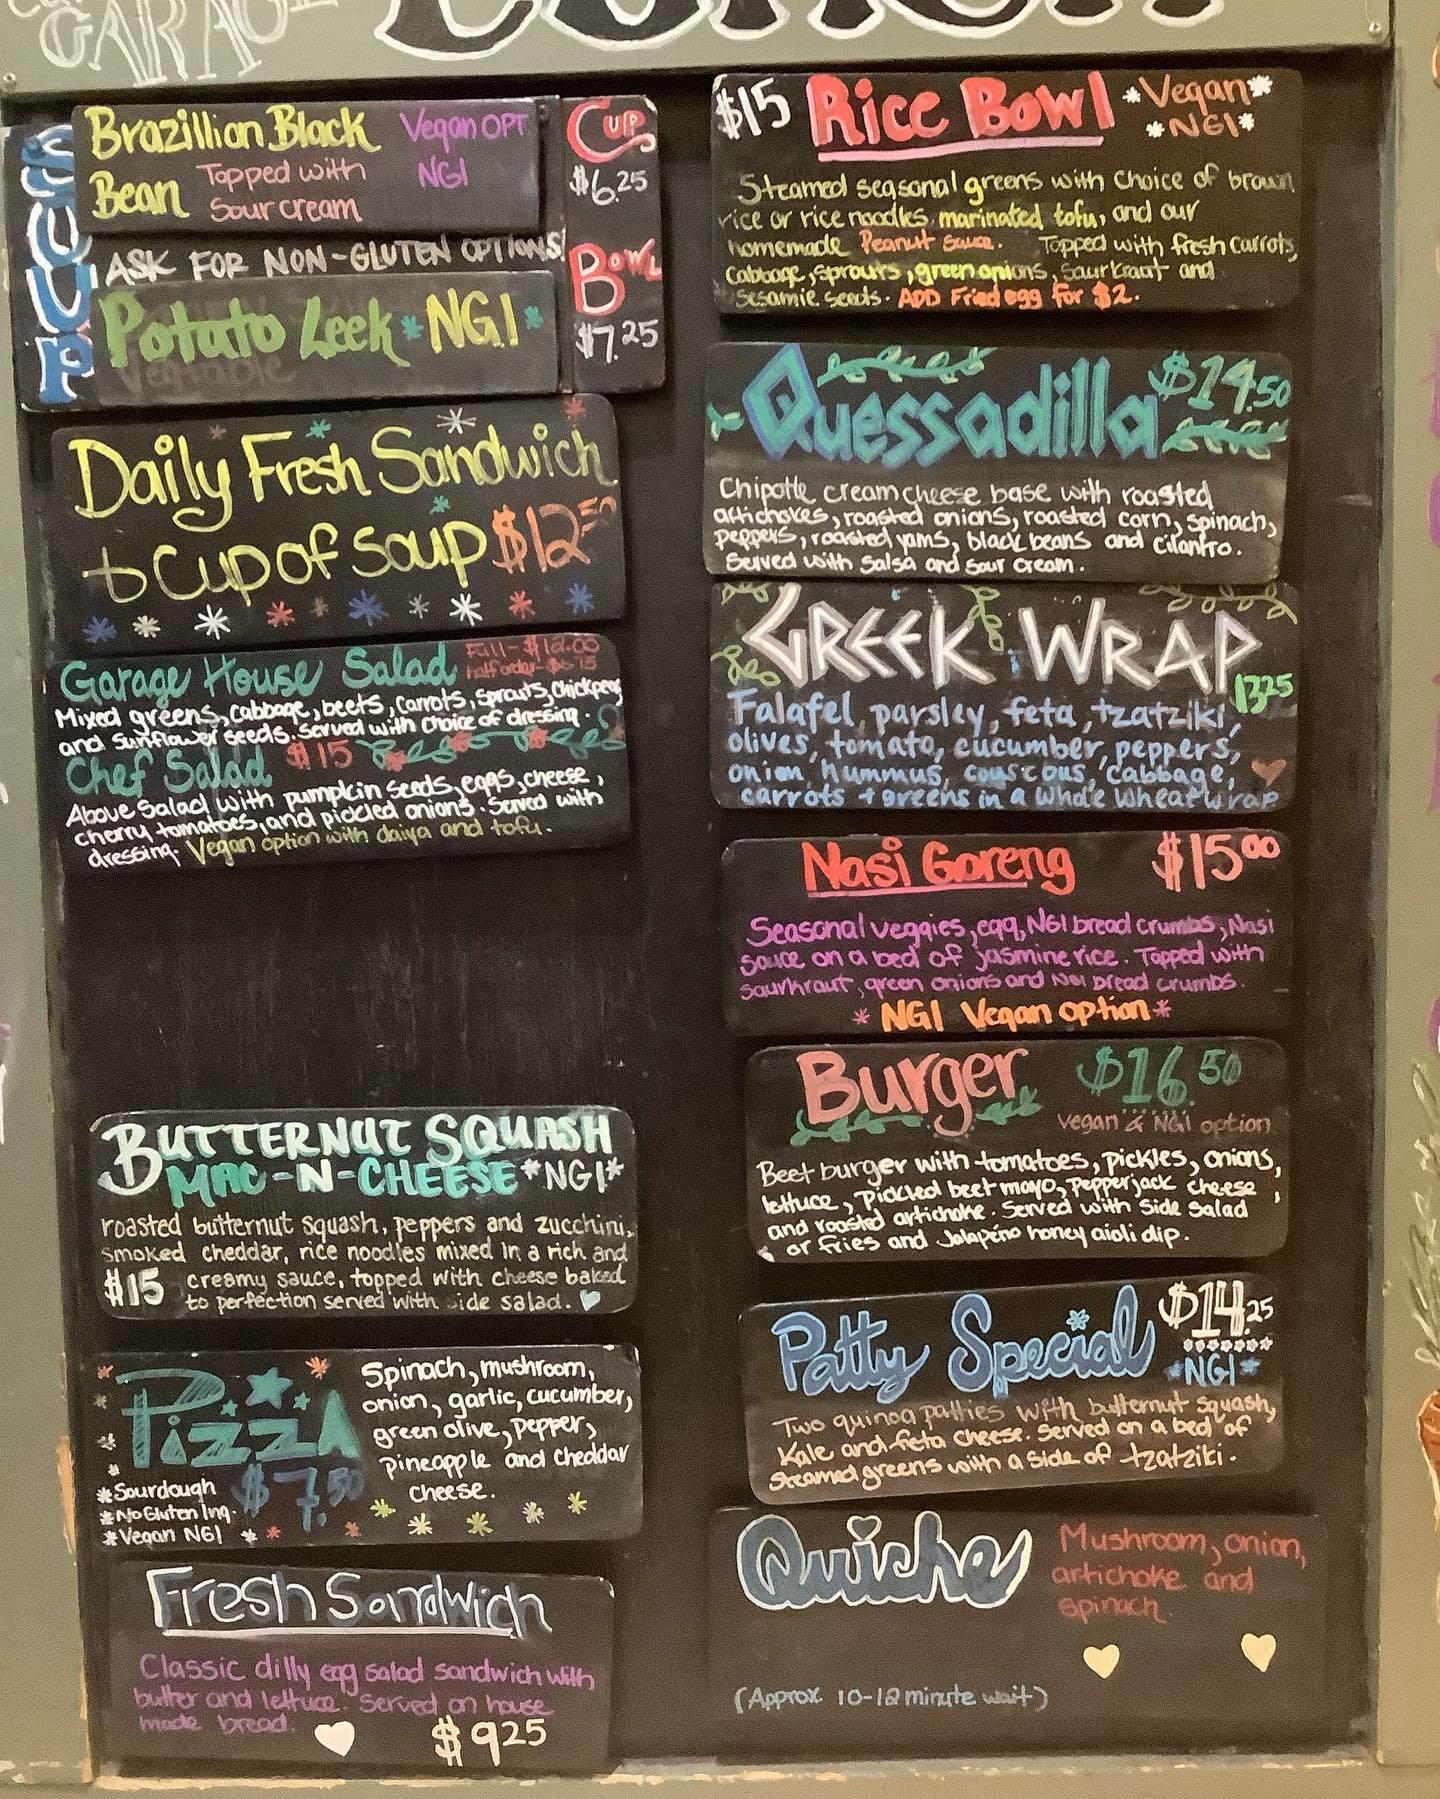 GARAG
LUNCH
SOUP
Brazillian Black
Bean
Topped with
Sour cream
Vegan OPT
NGI
CUP
$6.25
ASK FOR NON-GLUTEN OPTIONS
BOWL
$7.25
Potato Leek * NGI *
Vegetable
Daily Fresh Sandwich
+ Cup of Soup $12.50
Garage House Salad
Full - $12.00
half order - $6.75
Mixed greens, cabbage, beets, carrots, sprouts, chickpeas
and sunflower seeds. Served with choice of dressing.
Chef Salad $15
Above Salad with pumpkin seeds, eggs, cheese,
cherry tomatoes, and pickled onions. Served with
dressing. Vegan option with daiya and tofu.
BUTTERNUT SQUASH
MAC-N-CHEESE *NGI*
roasted butternut squash, peppers and zucchini,
smoked cheddar, rice noodles mixed in a rich and
$15 creamy sauce, topped with cheese baked
to perfection served with side salad.
PIZZA
$7.50
* Sourdough
* No Gluten Ing.
* Vegan NGI *
Spinach, mushroom,
onion, garlic, cucumber,
green olive, pepper,
pineapple and cheddar
cheese.
Fresh Sandwich
Classic dilly egg salad sandwich with
butter and lettuce. Served on house
made bread.
$9.25
$15 Rice Bowl
*Vegan*
*NGI*
Steamed seasonal greens with choice of brown
rice or rice noodles, marinated tofu, and our
homemade Peanut Sauce. Topped with fresh carrots,
cabbage, sprouts, green onions, saurkraut and
sesamie seeds. ADD Fried egg for $2.
Quessadilla $14.50
Chipotle cream cheese base with roasted
artichokes, roasted onions, roasted corn, spinach,
peppers, roasted yams, black beans and cilantro.
Served with salsa and sour cream.
GREEK WRAP
13.25
Falafel, parsley, feta, tzatziki,
olives, tomato, cucumber, peppers,
onion, hummus, couscous, cabbage,
carrots + greens in a whole wheat wrap
Nasi Goreng $15.00
Seasonal veggies, egg, NGI bread crumbs, Nasi
sauce on a bed of jasmine rice. Topped with
saurkraut, green onions and NGI bread crumbs.
* NGI Vegan option *
Burger $16.50
vegan & NGI option
Beet burger with tomatoes, pickles, onions,
lettuce, pickled beet mayo, pepperjack cheese,
and roasted artichoke. Served with side salad
or fries and Jalapeño honey aioli dip.
Patty Special
$14.25
*NGI*
Two quinoa patties with butternut squash,
Kale and feta cheese. Served on a bed of
steamed greens with a side of tzatziki.
Quiche
Mushroom, onion,
artichoke and
spinach.
(Approx. 10-12 minute wait)